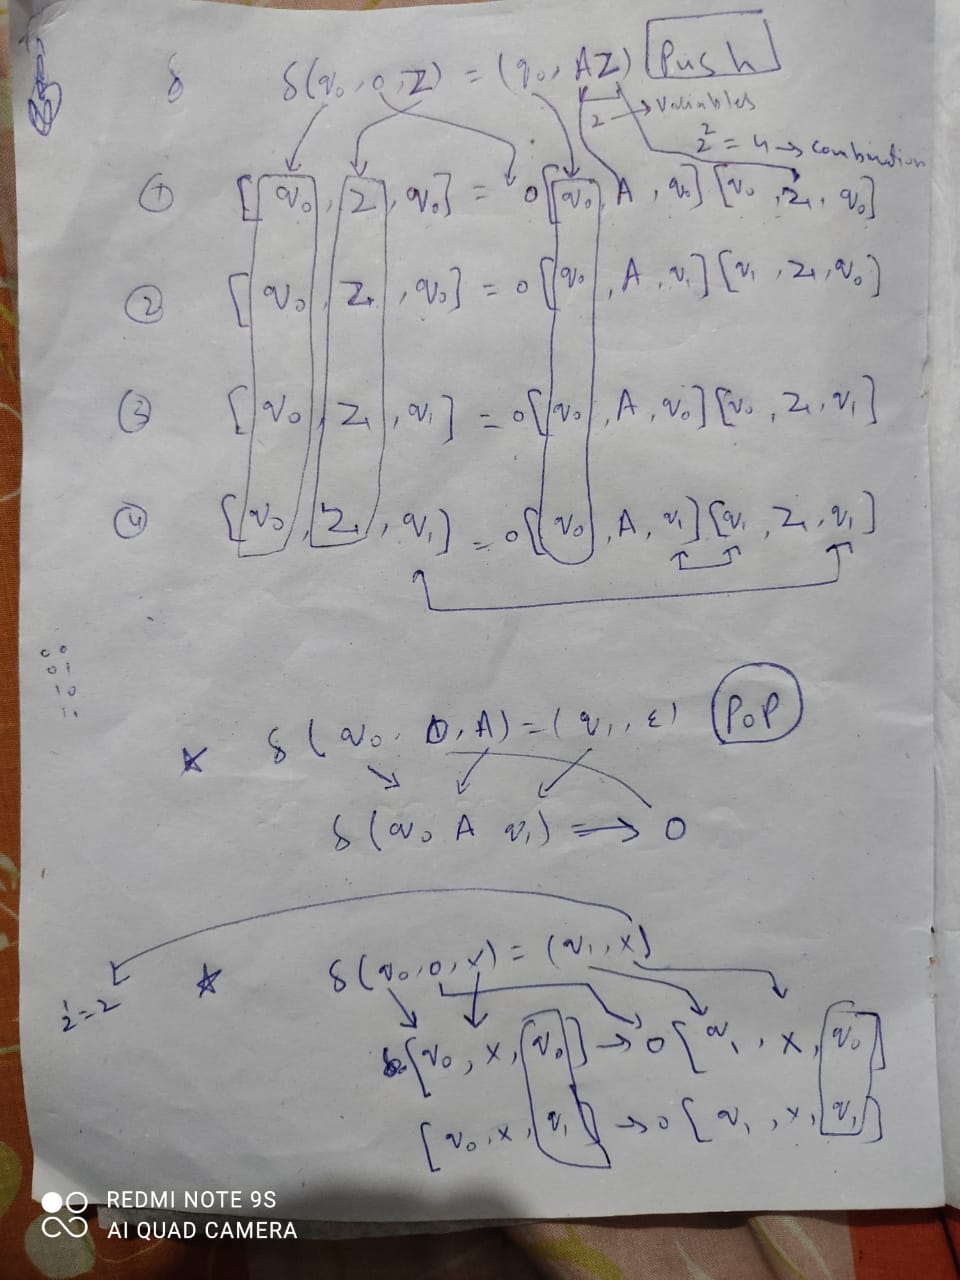 δ δ(q₀, 0, Z) = (q₀, AZ) Push
2 → Variables
2² = 4 → combination
① [q₀, Z, q₀] = 0[q₀, A, q₀][q₀, Z, q₀]
② [q₀, Z, q₀] = 0[q₀, A, q₁][q₁, Z, q₀]
③ [q₀, Z, q₁] = 0[q₀, A, q₀][q₀, Z, q₁]
④ [q₀, Z, q₁] = 0[q₀, A, q₁][q₁, Z, q₁]
00
01
10
11
☆ δ(q₀, 0, A) = (q₁, ε) POP
δ(q₀ A q₁) ⇒ 0
☆ δ(q₀, 0, X) = (q₁, X)
2¹ = 2
[q₀, X, q₀] → 0[q₁, X, q₀]
[q₀, X, q₁] → 0[q₁, X, q₁]
REDMI NOTE 9S
AI QUAD CAMERA